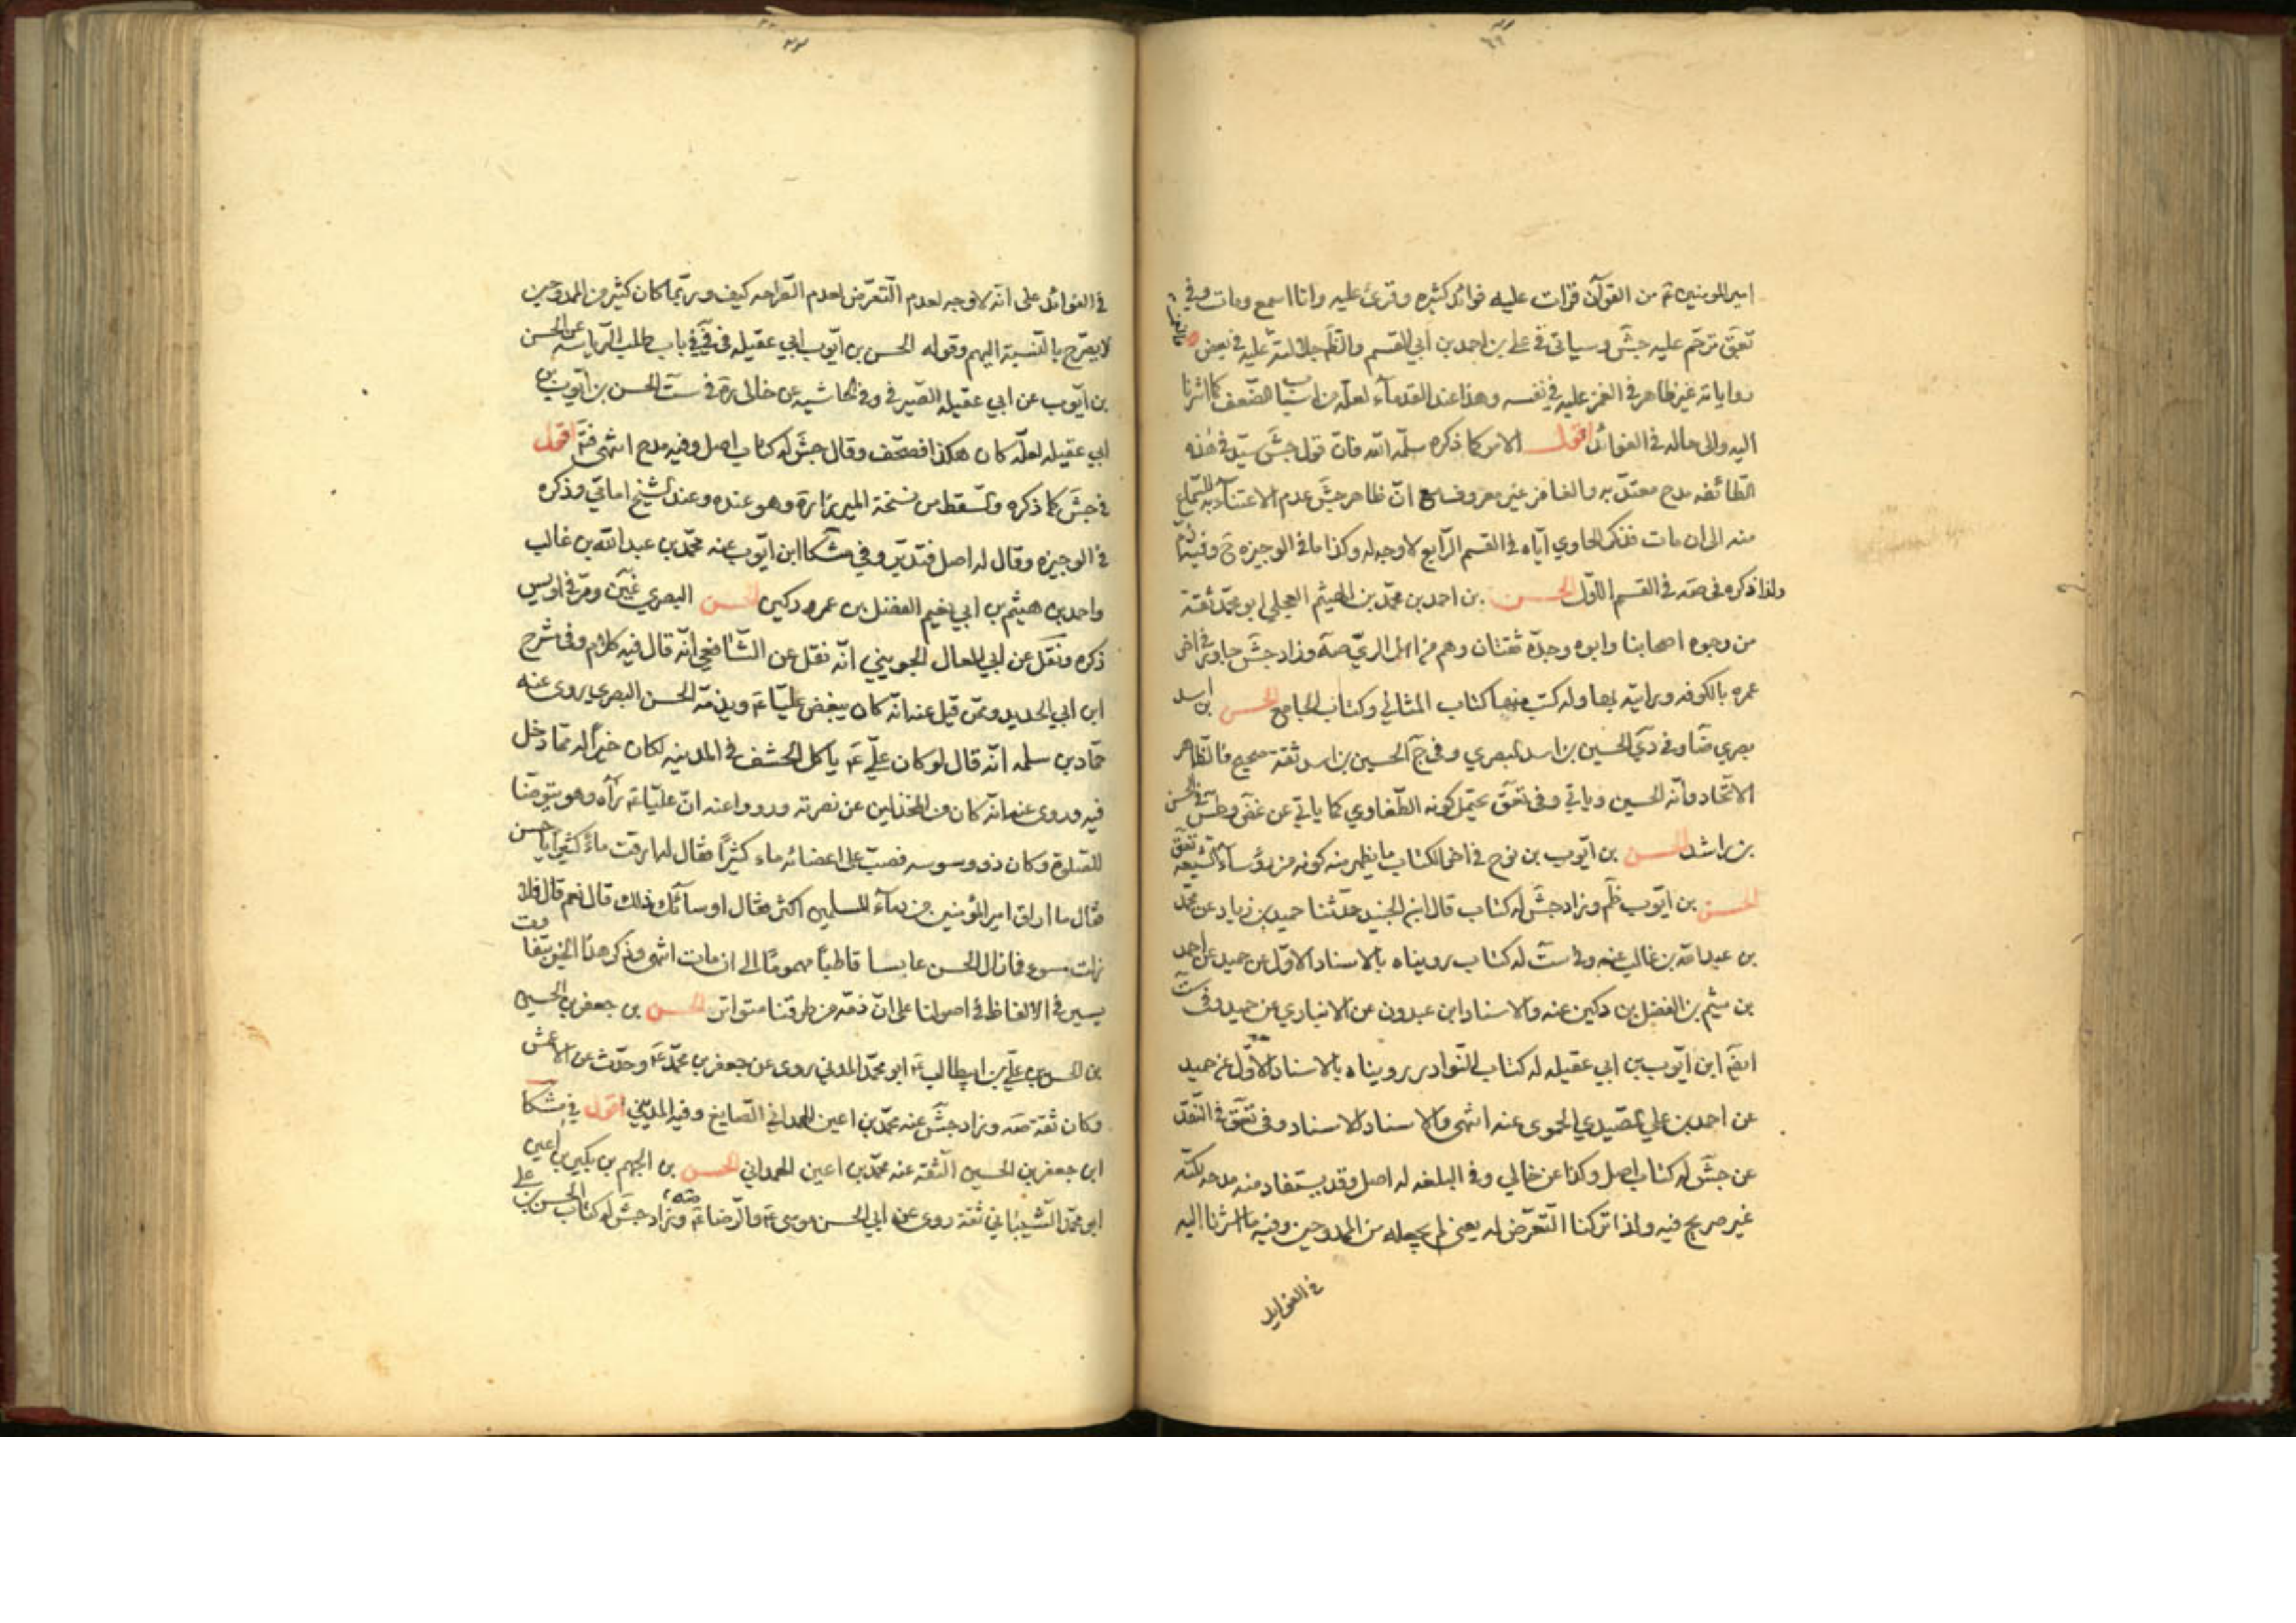 امير المومنين ع من القرآن قرات عليه فوائد كثيره وقرئ عليه وانا اسمع ومات وفي
تعق ترحم عليه جش وسياتي في علي بن احمد بن ابي القسم والنظر جلالته عليه في بعض
رواياته غير ظاهر في الغمز عليه في نفسه وهذا عند القدماء لعله من اسباب الضعف كما اشرنا
اليه والى حاله في الفوائد اقول الامر كما ذكره سلمه الله فان قول جش سيد في هذه
الطائفه مدح معتد به والغامز غير معروف مع ان ظاهر جش عدم الاعتناء به للسماع
منه الى ان مات فذكر الحاوي اياه في القسم الرابع لا وجه له وكذا ما في الوجيزه
ولذا ذكره في صه في القسم الاول الحسن بن احمد بن محمد بن الهيثم العجلي ابو محمد ثقة
من وجوه اصحابنا وابوه وجده ثقتان وهم من اهل الري صه وزاد جش جاور في اخر
عمره بالكوفه ورايته بها وله كتب منها كتاب المثاني وكتاب الجامع الحسن بن اسد
بصري ضا وفي دي الحسين بن اسد البصري وفي ج الحسين بن اسد ثقة صحيح فالظاهر
الاتحاد وانه الحسين وياتي وفي تعق يحتمل كونه الطفاوي كما ياتي عن غض وطس في الحسن
بن راشد الحسن بن ايوب بن نوح في اخر الكتاب ما يظهر منه كونه من رؤساء الشيعه تعق
الحسن بن ايوب ظم وزاد جش له كتاب قال ابن الجنيد حدثنا حميد بن زياد عن محمد
بن عبد الله بن غالب عنه وفي ست له كتاب رويناه بالاسناد الاول عن حميد عن احمد
بن ميثم بن الفضل بن دكين عنه والاسناد ابن عبدون عن الانباري عن حميد وفي ست
ايضا ابن ايوب بن ابي عقيله له كتاب النوادر رويناه بالاسناد الاول عن حميد
عن احمد بن علي الصيدي الحموي عنه انتهى والاسناد الاسناد وفي تعق في النقد
عن جش له كتاب اصل وكذا عن خالي وفي البلغه له اصل وقد يستفاد منه مدحه لكنه
غير صريح فيه ولذا تركنا التعرض له يعني لم يجعله من الممدوحين وفيه ما اشرنا اليه
في الفوايد
في الفوائد على انه لا وجه لعدم التعرض لعدم الصراحه كيف وربما كان كثير من الممدوحين
لا يصرح بالنسبة اليهم وقوله الحسن بن ايوب ابي عقيله في في في باب طلب الرياسه عن الحسن
بن ايوب عن ابي عقيله الصيرفي وفي الحاشيه عن خالي ره في ست الحسن بن ايوب بن
ابي عقيله لعله كان هكذا فصحف وقال جش له كتاب اصل وفيه مدح انتهى فتم اقول
في جش كما ذكره وسقط من نسخة الميرزا ره وهو عنده وعند الشيخ امامي وذكره
في الوجيزه وقال له اصل فتدبر وفي مشكا ابن ايوب عنه محمد بن عبد الله بن غالب
واحمد بن هيثم بن ابي نعيم الفضل بن عمرو دكين الحسن البصري غير ومر في اويس
ذكره ونقل عن ابي المعال الجويني انه نقل عن الشافعي انه قال فيه كلام وفي شرح
ابن ابي الحديد وممن قيل عنه انه كان يبغض عليا ع ويذمه الحسن البصري روى عنه
حماد بن سلمه انه قال لو كان علي ع ياكل الحشف في المدينه لكان خيرا له مما دخل
فيه وروى عنه انه كان من المخذلين عن نصرته ورووا عنه ان عليا ع رآه وهو يتوضا
للصلوة وكان ذو وسوسه فصب على اعضائه ماء كثيرا فقال له ارقت ماء كثيرا يا حسن
فقال ما اراق امير المؤمنين من دماء المسلمين اكثر فقال اوساءك ذلك قال نعم قال فلا
زلت مسوء فما زال الحسن عابسا قاطبا مهموما الى ان مات انتهى وذكر هذا الخبر بتفاوت
يسير في الالفاظ في اصولنا على ان ذمه من طرقنا متواتر الحسن بن جعفر بن الحسن
بن الحسن بن علي بن ابيطالب ع ابو محمد المدني روى عن جعفر بن محمد ع وحدث عن الاعمش
وكان ثقة صه وزاد جش عنه محمد بن اعين الهمداني الصايغ وفيه المديني اقول في مشكا
ابن جعفر بن الحسين الثقه عنه محمد بن اعين الهمداني الحسن بن الجهم بن بكير بن اعين
ابو محمد الشيباني ثقة روى عن ابي الحسن موسى ع والرضا ع صه وزاد جش له كتاب الحسن بن علي